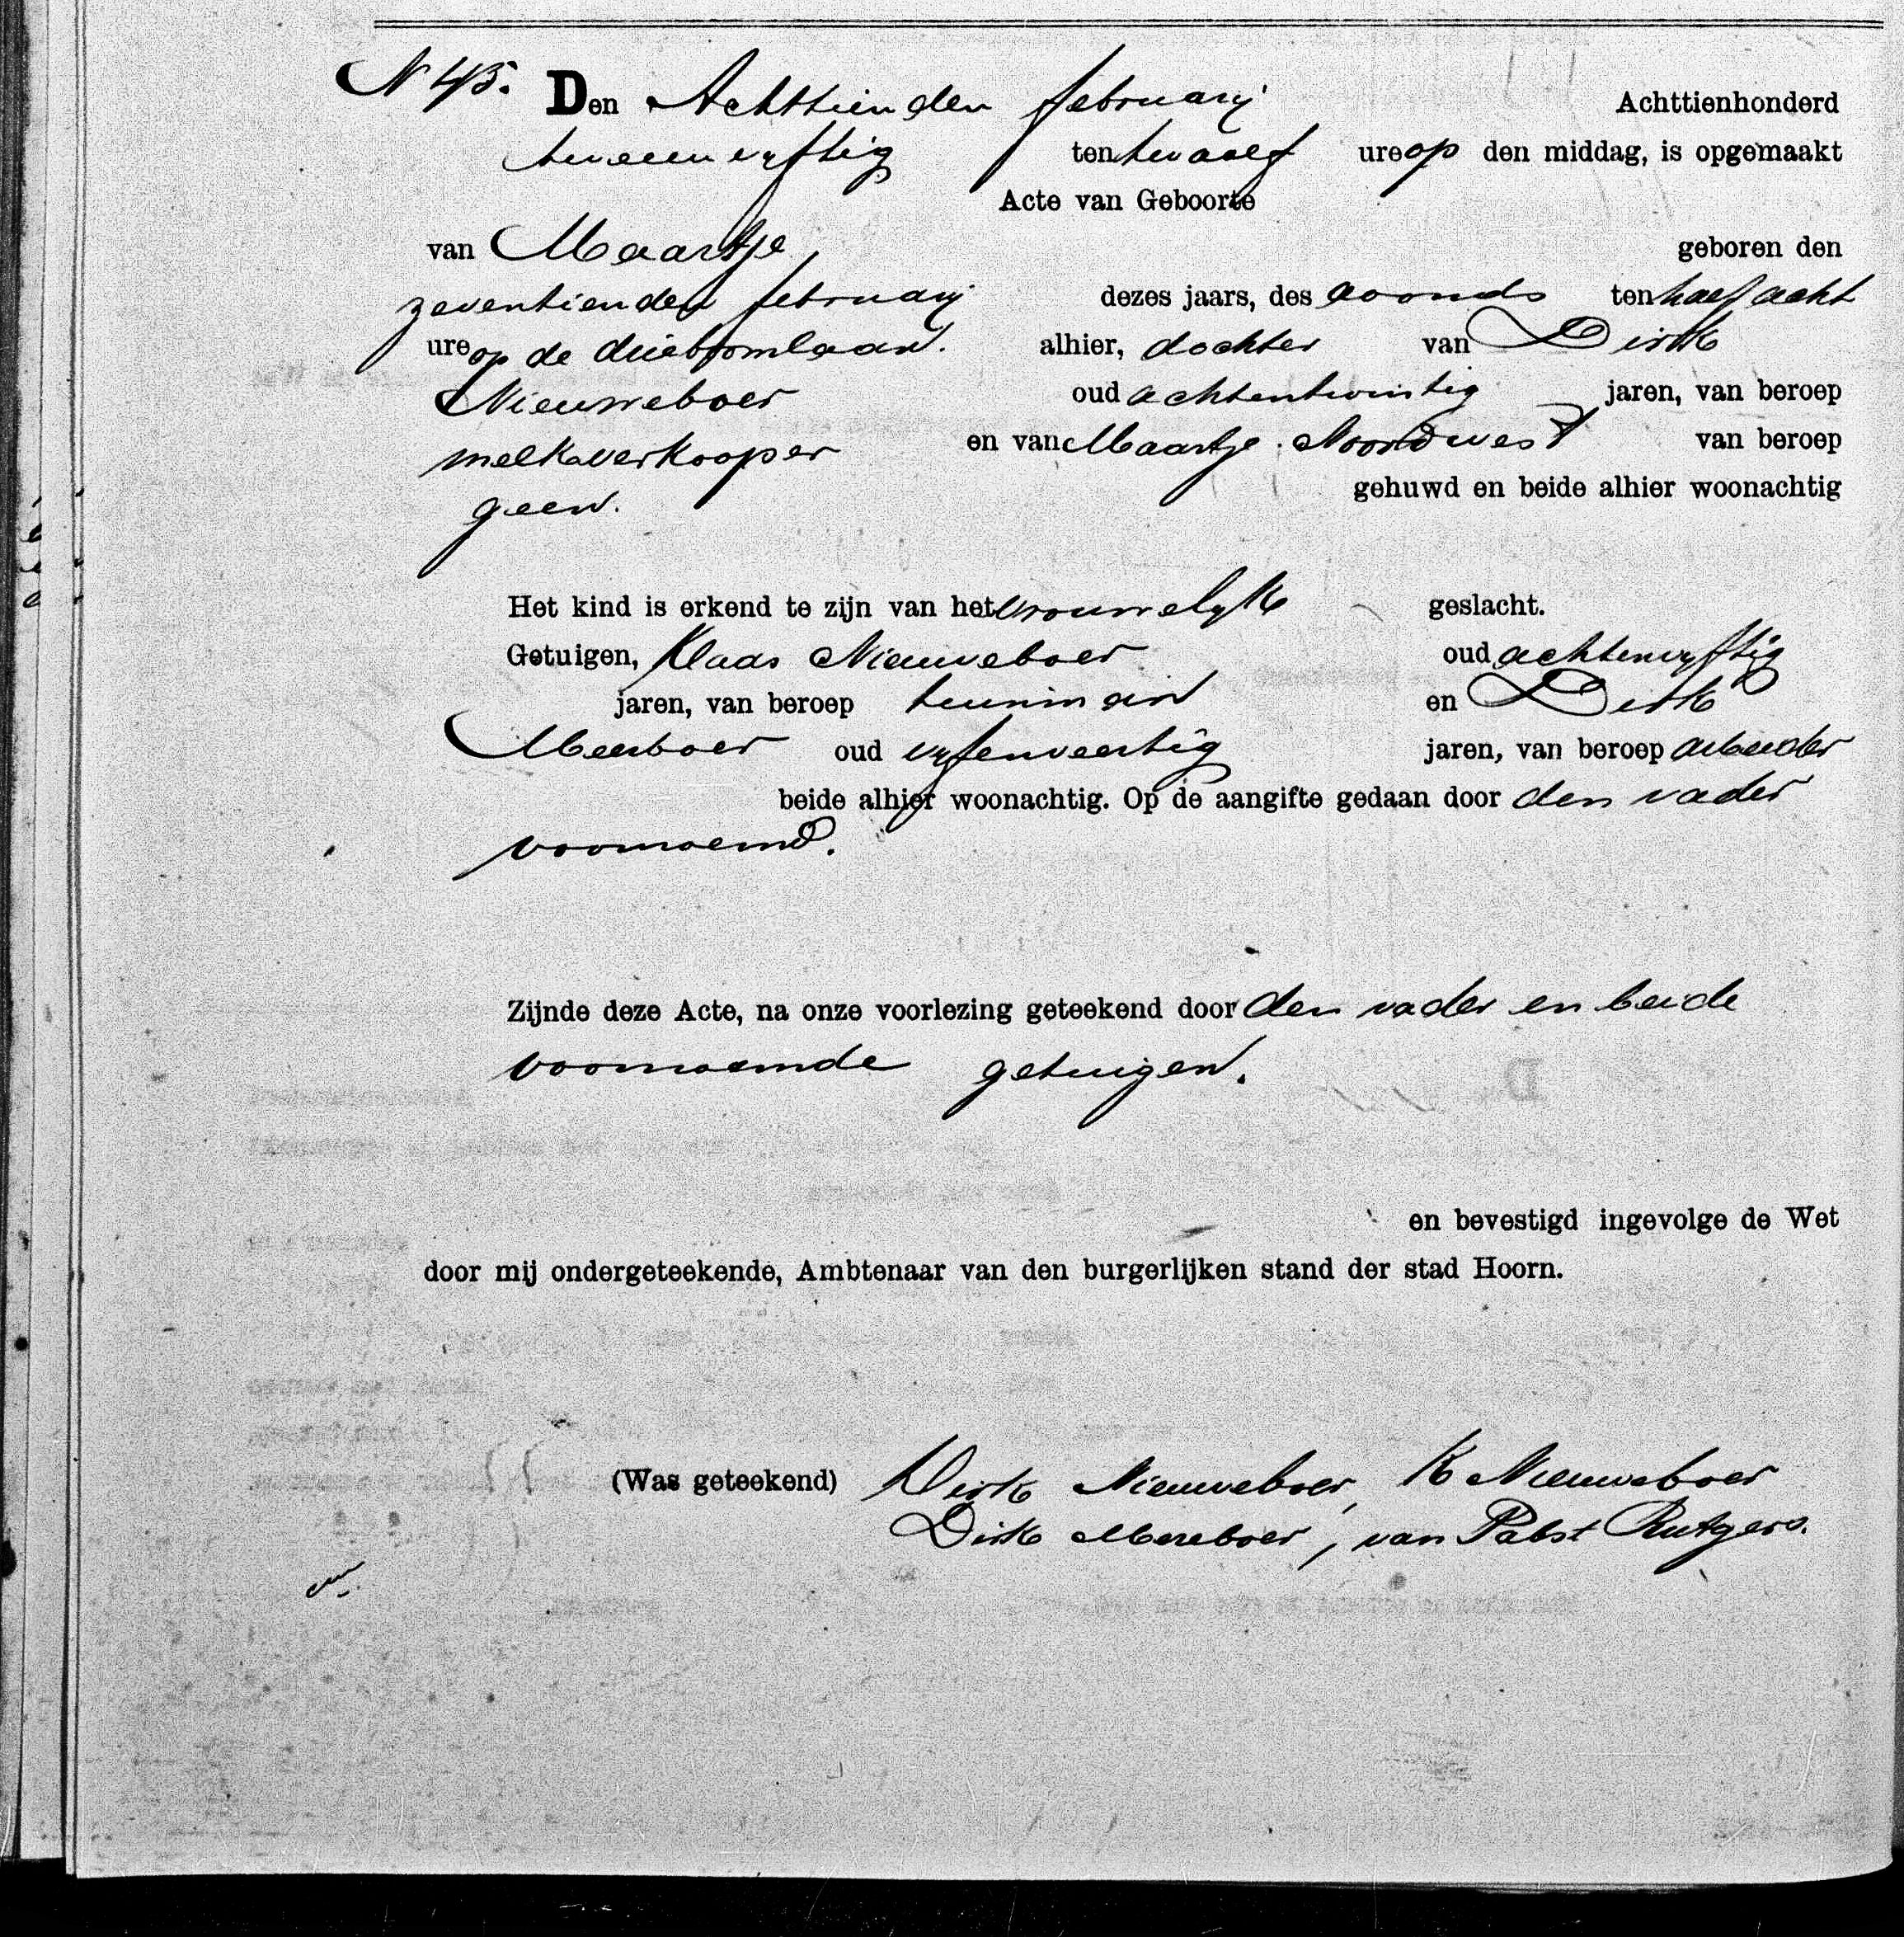 N 45. Den Achttienden february Achttienhonderd
tweeenvyftig ten twaalf ure op den middag, is opgemaakt
Acte van Geboorte
van Maartje geboren den
zeventienden february dezes jaars, des avonds ten half acht
ure op de drieboomlaan. alhier, dochter van Dirk
Nieuweboer oud achtentwintig jaren, van beroep
melkverkooper en van Maartje Noordwest van beroep
geen. gehuwd en beide alhier woonachtig
Het kind is erkend te zijn van het vrouwelyk geslacht.
Getuigen, Klaas Nieuweboer oud achtenvyftig
jaren, van beroep tuinman en Dirk
Meerboer oud vyfenveertig jaren, van beroep arbeider
beide alhier woonachtig. Op de aangifte gedaan door den vader
voornoemd.
Zijnde deze Acte, na onze voorlezing geteekend door den vader en beide
voornoemde getuigen.
en bevestigd ingevolge de Wet
door mij ondergeteekende, Ambtenaar van den burgerlijken stand der stad Hoorn.
(Was geteekend) Dirk Nieuweboer, K Nieuweboer
Dirk Mereboer, van Pabst Rutgers.